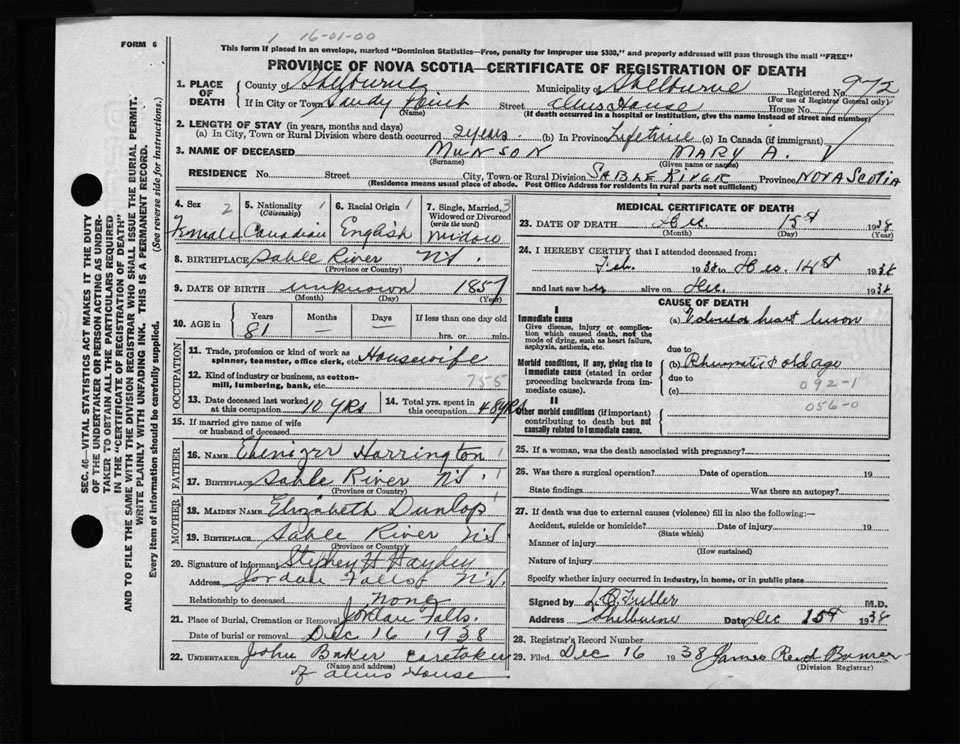 16-01-00
FORM 6
This form if placed in an envelope, marked "Dominion Statistics—Free, penalty for improper use $300," and properly addressed will pass through the mail "FREE"
PROVINCE OF NOVA SCOTIA—CERTIFICATE OF REGISTRATION OF DEATH
1. PLACE OF DEATH County of Shelburne Municipality of Shelburne Registered No. 972
(For use of Registrar General only)
If in City or Town Sandy Point Street Alms House House No.
(Name) (If death occurred in a hospital or institution, give the name instead of street and number)
2. LENGTH OF STAY (in years, months and days)
(a) In City, Town or Rural Division where death occurred 2 years (b) In Province Lifetime (c) In Canada (if immigrant)
3. NAME OF DECEASED MUNSON MARY A.
(Surname) (Given name or names)
RESIDENCE No. Street City, Town or Rural Division SABLE RIVER Province NOVA SCOTIA
(Residence means usual place of abode. Post Office Address for residents in rural parts not sufficient)
4. Sex 2 Female
5. Nationality 1 (Citizenship) Canadian
6. Racial Origin 1 English
7. Single, Married, Widowed or Divorced 3 (write the word) Widow
8. BIRTHPLACE Sable River N.S.
(Province or Country)
9. DATE OF BIRTH unknown 1857
(Month) (Day) (Year)
10. AGE in Years 81 Months — Days — If less than one day old hrs. or min.
OCCUPATION
11. Trade, profession or kind of work as spinner, teamster, office clerk, etc. Housewife
12. Kind of industry or business, as cotton-mill, lumbering, bank, etc. 7555
13. Date deceased last worked at this occupation 10 YRS
14. Total yrs. spent in this occupation 48 YRS
15. If married give name of wife or husband of deceased
FATHER
16. NAME Ebenezer Harrington
17. BIRTHPLACE Sable River N.S.
(Province or Country)
MOTHER
18. MAIDEN NAME Elizabeth Dunlop
19. BIRTHPLACE Sable River N.S.
(Province or Country)
20. Signature of informant Stephen H Hayden
Address Jordan Falls N.S.
Relationship to deceased none
21. Place of Burial, Cremation or Removal Jordan Falls.
Date of burial or removal Dec 16 1938
22. UNDERTAKER John Baker caretaker
(Name and address)
of Alms House
MEDICAL CERTIFICATE OF DEATH
23. DATE OF DEATH Dec. 15th 1938
(Month) (Day) (Year)
24. I HEREBY CERTIFY that I attended deceased from:
Feb. 1938 to Dec. 14th 1938
and last saw her alive on Dec. 1938
CAUSE OF DEATH
I
Immediate cause
Give disease, injury or complication which caused death, not the mode of dying, such as heart failure, asphyxia, asthenia, etc.
(a) Valvular heart lesion
due to
Morbid conditions, if any, giving rise to immediate cause (stated in order proceeding backwards from immediate cause).
(b) Rhumatic & old age
due to 092-1
(c)
056-0
II
Other morbid conditions (if important) contributing to death but not causally related to immediate cause.
25. If a woman, was the death associated with pregnancy?
26. Was there a surgical operation? Date of operation 19
State findings Was there an autopsy?
27. If death was due to external causes (violence) fill in also the following:—
Accident, suicide or homicide? Date of injury 19
(State which)
Manner of injury
(How sustained)
Nature of injury
Specify whether injury occurred in industry, in home, or in public place
Signed by L.O. Fuller M.D.
Address Shelburne Date Dec 15th 1938
28. Registrar's Record Number
29. Filed Dec 16 1938 James Reid
(Division Registrar)
SEC. 46—VITAL STATISTICS ACT MAKES IT THE DUTY
OF THE UNDERTAKER OR PERSON ACTING AS UNDER-
TAKER TO OBTAIN ALL THE PARTICULARS REQUIRED
IN THE "CERTIFICATE OF REGISTRATION OF DEATH"
AND TO FILE THE SAME WITH THE DIVISION REGISTRAR WHO SHALL ISSUE THE BURIAL PERMIT.
WRITE PLAINLY WITH UNFADING INK. THIS IS A PERMANENT RECORD.
Every item of information should be carefully supplied.
(See reverse side for instructions.)